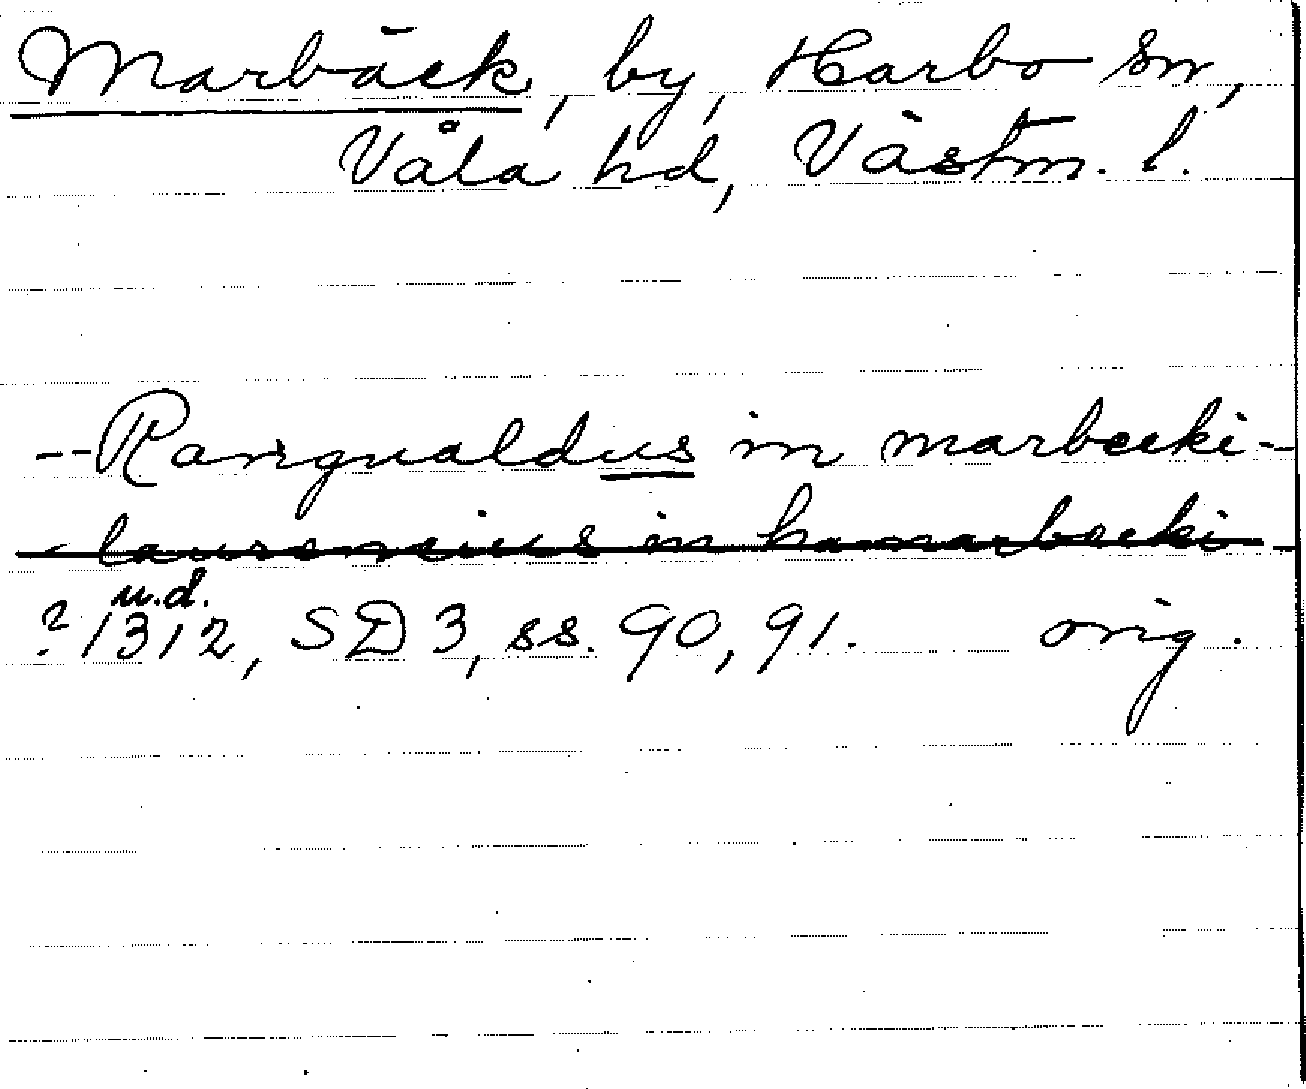 Marbäck, by, Harbo sn,
Våla hd, Västm. l.
-- Rangualdus in marbecki -
- laurencius in hamarbecki -
u.d.
? 1312, SD 3, ss. 90, 91. orig.